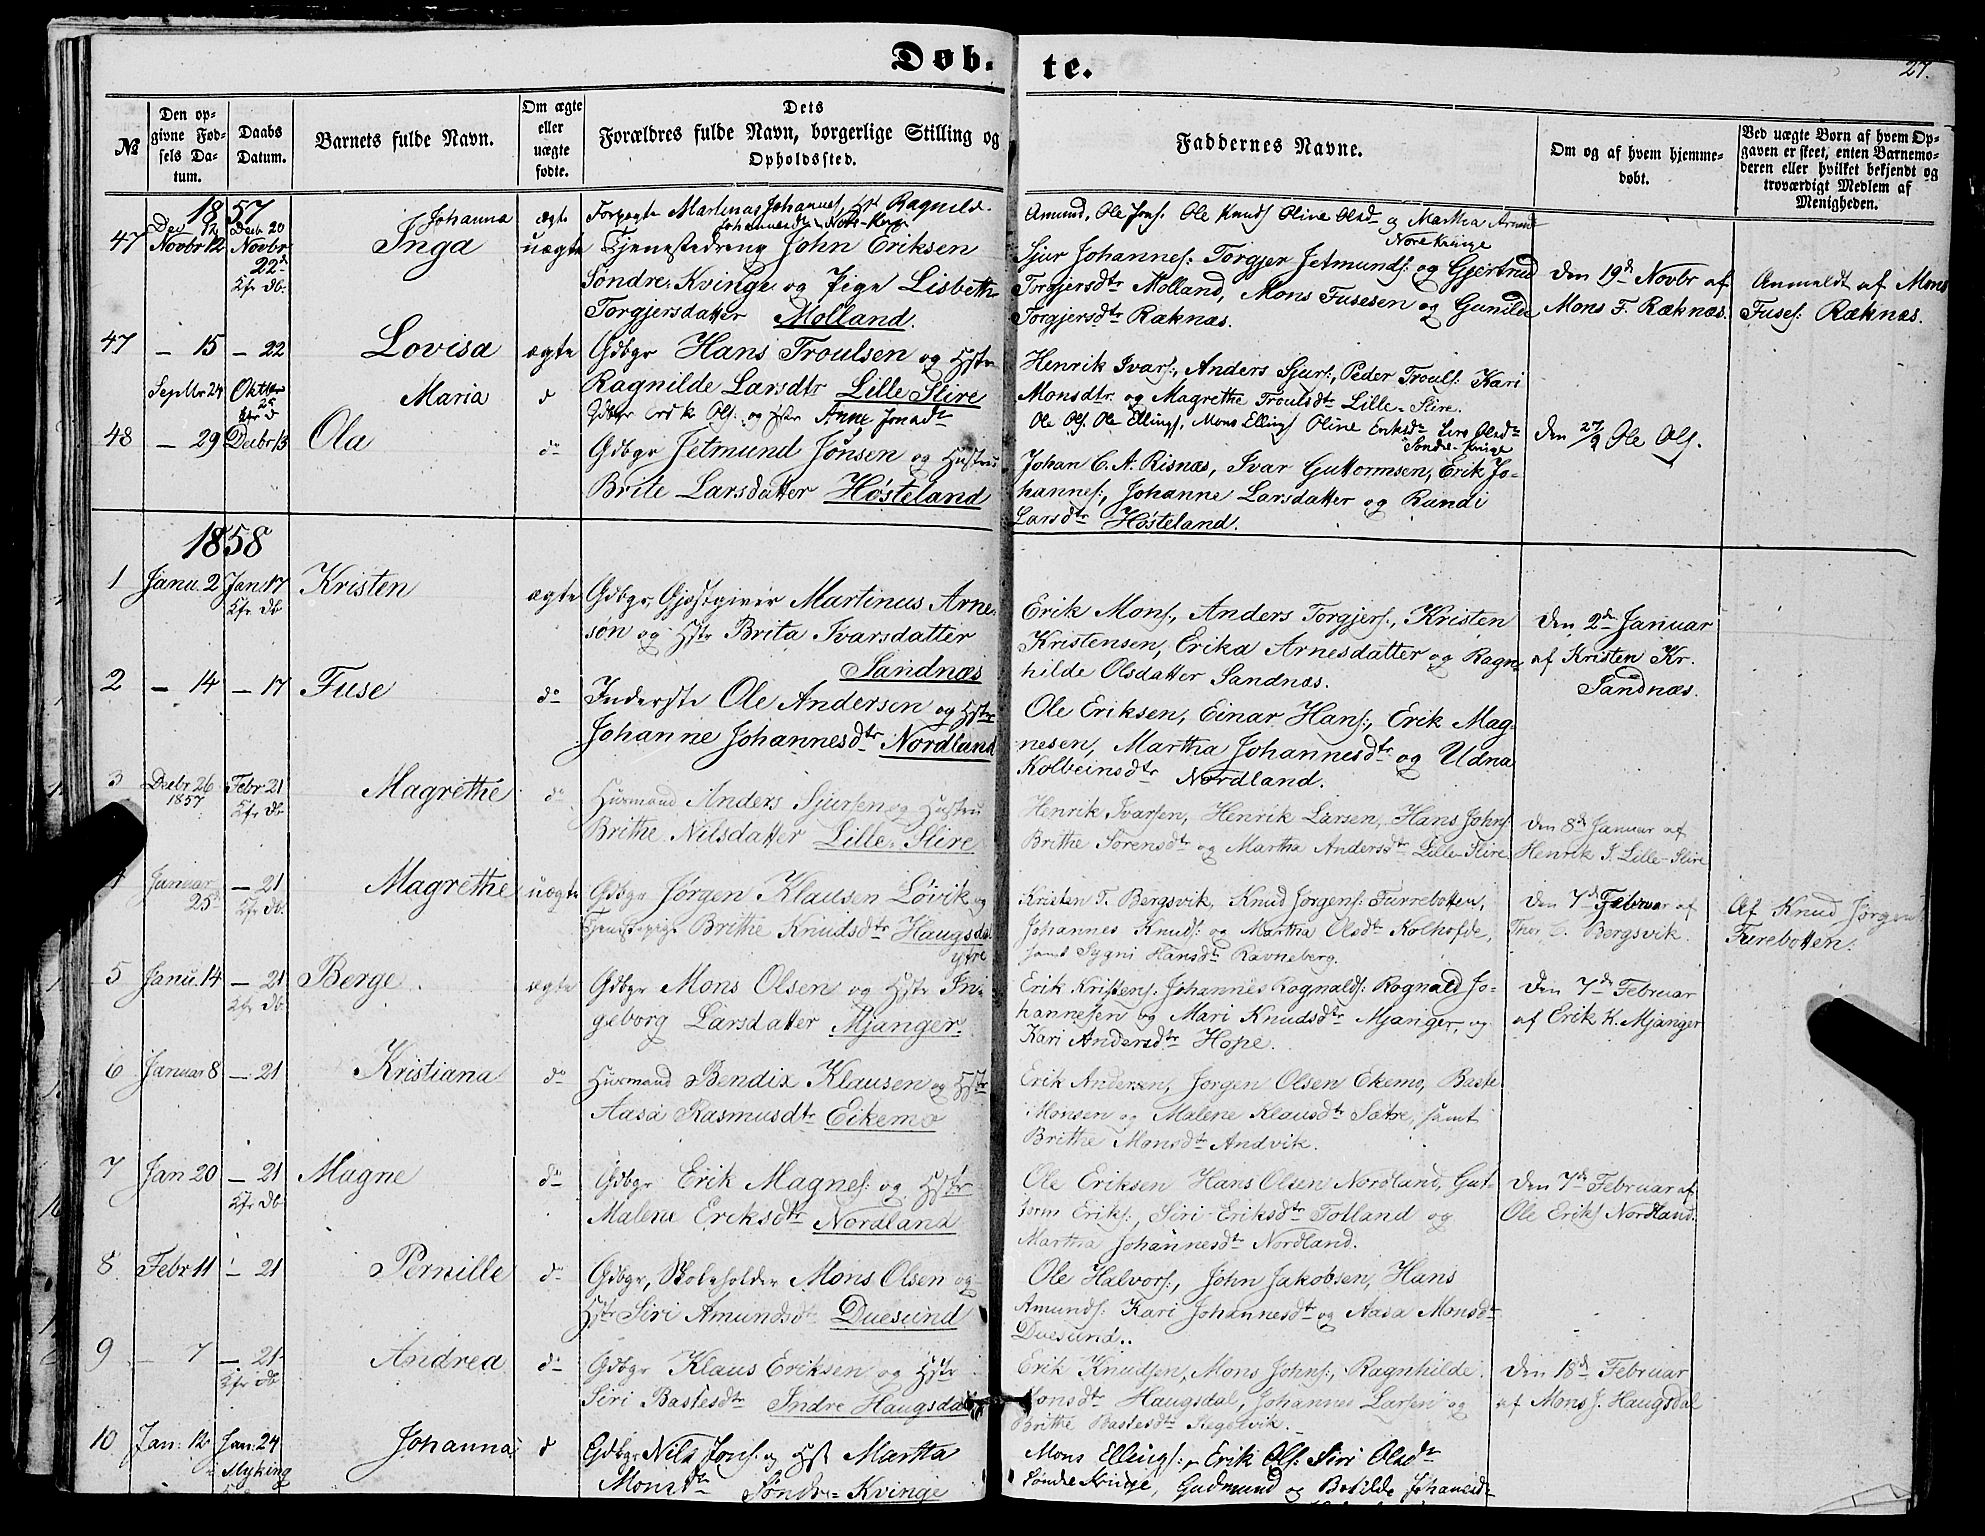 Døb- te.
27.
№
Den op-
givne Fød-
sels Da-
tum.
Daabs
Datum.
Barnets fulde Navn.
Om ægte
eller
uægte
fødte.
Dets
Forældres fulde Navn, borgerlige Stilling og
Opholdssted.
Faddernes Navne.
Om og af hvem hjemme-
døbt.
Ved uægte Børn af hvem Op-
gaven er skeet, enten Barnemo-
deren eller hvilket bekjendt og
troværdigt Medlem af
Menigheden.
1857
Johanna ægte Martinas Johannes Ragnilde
Amund, Ole Jons. Ole Knuds Oline Olsd og Martha
Nore Kvinge
47 Novbr 12 Novbr 22 Inga uægte Tjenestedreng John Eriksen
Søndre-Kvinge og Pige Lisbeth
Torgjersdatter Molland.
Sjur Johannes: Torgjer Jetmunds: og Gjertrud
Torgjersdtr Molland, Mons Fusesen og Gunilde
Torgjersdtr Raknæs.
Den 19de Novbr af
Mons F. Ræknæs.
Anmeldt af Mons
Fuses: Ræknæs.
47 – 15 – 22 Lovisa ægte Gdbgr Hans Troulsen og Hstr
Ragnilde Larsdtr Lille Slire
Henrik Ivars:, Anders Sjurs:, Peder Trouls: Kari
Monsdtr og Magrethe Troulsdtr Lille-Slire.
Septbr 24 Oktbr 25 Maria d Ols. og Hstr Anne Jonsdtr
Ole Ols. Ole Ellings, Mons Ellings Oline Eriksdtr Olsdtr
Søndre-Kvinge
den 27/9 Ole Ols.
48 – 29 Decbr 13 Ola do Gdbgr Jetmund Jonsen og Hustru
Brite Larsdatter Høsteland
Johan C. A. Risnæs, Ivar Guttormsen, Erik Jo-
hannes:, Johanne Larsdatter og Randi
Larsdtr Høsteland.
1858
1 Janu. 2 Jan. 17 Kristen ægte Gdbgr, Gjæstgiver Martinus Arne-
Kfr Db
søn og Hstr Brita Ivarsdatter
Sandnæs
Erik Mons:, Anders Torgjers:, Kristen
Kristensen, Erika Arnesdatter og Ragn-
hilde Olsdatter Sandnæs.
Den 2den Januar
af Kristen Kr.
Sandnæs.
2 – 14 – 17 Fuse do Inderste Ole Andersen og Hstr
Johanne Johannesdtr Nordland
Ole Eriksen, Einar Hans:, Erik Mag-
nesen, Martha Johannesdtr og Udna
Kolbeinsdtr Nordland.
3 Decbr 26 1857 Febr 21 Magrethe do Husmand Anders Sjursen og Hustru
Kfr Db
Brithe Nilsdatter Lille-Slire
Henrik Ivarsen, Henrik Larsen, Hans Johns:
Brithe Sørensdtr og Martha Andersdtr Lille-Slire
Den 8de Januar af
Henrik I. Lille-Slire
4 Januar 25de – 21 Magrethe uægte Gdbgr Jørgen Klausen Løvik og
Kfr Db.
Tjenestepige Brithe Knudsdtr Haugsdal
ytre
Kristen T. Bergsvik, Knud Jørgens: Furrebotten,
Johannes Knuds: og Martha Olsdtr Kolhofde,
samt Sygni Hansdtr Ravneberg.
Den 7de Februar af
Bergsvik.
Af Knud Jørgens:
Furebotten.
5 Janu. 14 – 21 Berge. ægte Gdbgr Mons Olsen og Hstr In-
Kfr Db.
geborg Larsdatter Mjanger.
Erik Kristens: Johannes Rognalds: Rognald Jo-
hannesen og Mari Knudsdtr Mjanger, og
Kari Andersdtr Hope.
Den 7de Februar
af Erik K. Mjanger
6 Januar 8 – 21 Kristiana do Husmand Bendix Klausen og Hstr
Aasa Rasmusdtr Eikemo
Erik Andersen, Jørgen Olsen Ekemo, Baste
Monsen og Malene Klausdtr Sætre, samt
Brithe Monsdtr Andvik.
7 Jan 20 – 21 Magne do Gdbgr Erik Magnes: og Hstr
Kfr Db
Malene Eriksdtr Nordland
Ole Eriksen Hans Olsen Nordland, Gut-
torm Eriks:, Siri Eriksdtr Totland og
Martha Johannesdtr Nordland.
Den 7de Februar af
Ole Eriks Nordland.
8 Febr 11 – 21 Pernille do Gdbgr, Skoleholder Mons Olsen og
Hstr Siri Amundsdtr Duesund
Ole Halvors:, John Jakobsen, Hans
Amunds: Kari Johannesdtr og Aasa Monsdtr
Duesund.
9 – 7 – 21 Andrea do Gdbgr Klaus Eriksen og Hstr
Kfr Db
Siri Bastesdtr Indre Haugsdal
Erik Knudsen, Mons Johns:, Ragnhilde
Monsdtr Haugsdal, Johannes Larsen og
Brithe Bastesdtr
Den 18de Februar
af Mons J. Haugsdal
10 Jan: 12 Jan: 24 Johanna d Gdbgr Nils Jons: og Hst Martha
Myking
Monsdtr Søndre-Kvinge
Mons Ellings:, Erik Ols: Siri Olsdtr
Søndre Kvinge, Gudmund og Botilde Johannesdtr